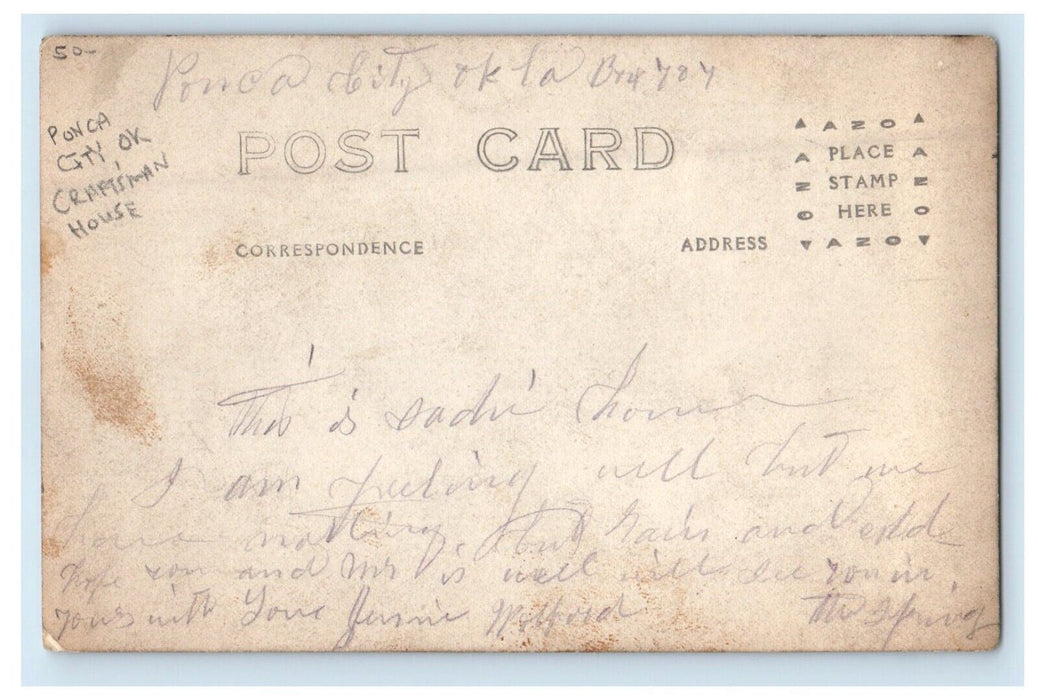 50-
Ponca City Okla Box 707
PONCA
CITY, OK
CRAFTSMAN
HOUSE
POST CARD
▲ A Z O ▲
A PLACE A
Z STAMP Z
O HERE O
▼ A Z O ▼
CORRESPONDENCE
ADDRESS
This is Sadie home
I am feeling well but we
have nothing but rain and cold
hope you and Mr is well will see you in
the Spring
yours with Love Jennie